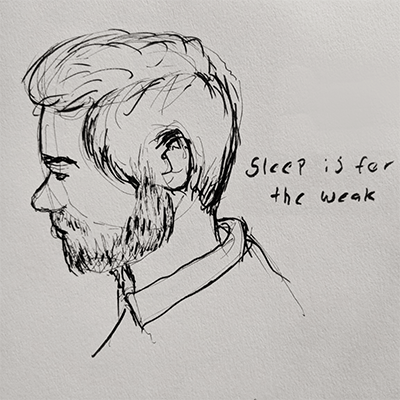 Sleep is for
the weak